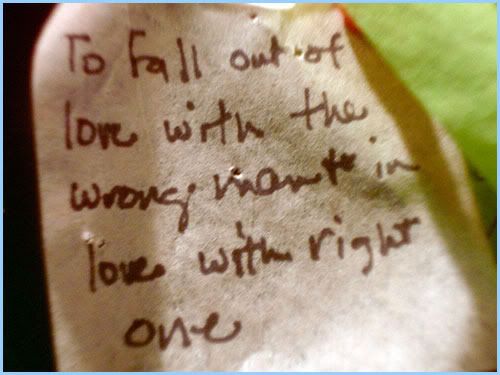 To fall out of
love with the
wrong man + in
love with right
one